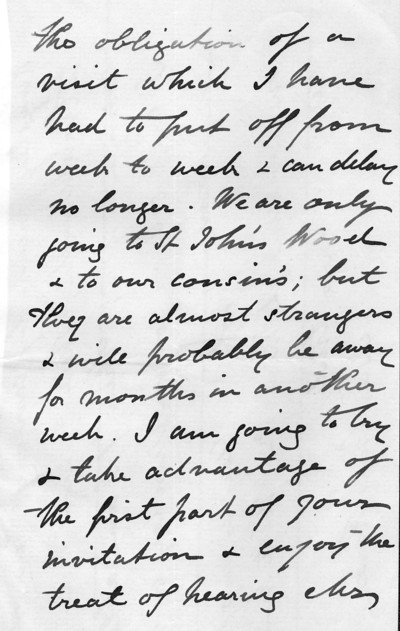 the obligation of a
visit which I have
had to put off from
week to week & can delay
no longer. We are only
going to St John's Wood
& to our cousin's; but
they are almost strangers
& will probably be away
for months in another
week. I am going to try
& take advantage of
the first part of your
invitation & enjoy the
treat of hearing Mrs